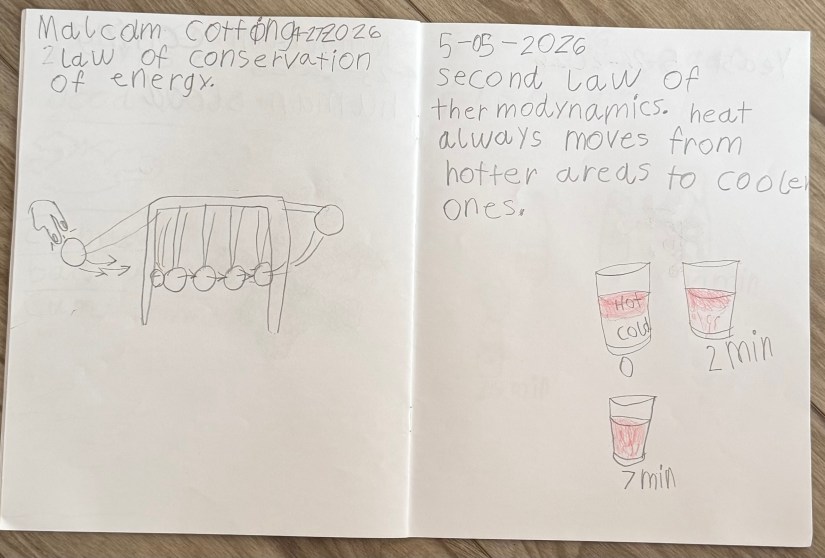 Malcom Cotting 4-27-2026
2 law of conservation
of energy.
5-05-2026
second law of
thermodynamics. heat
always moves from
hotter areas to cooler
ones.
Hot
Cold
0
2 min
7 min